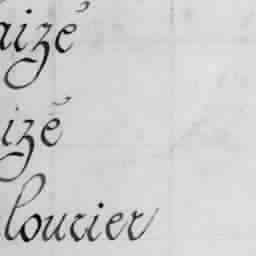 aizé
izé
lourier